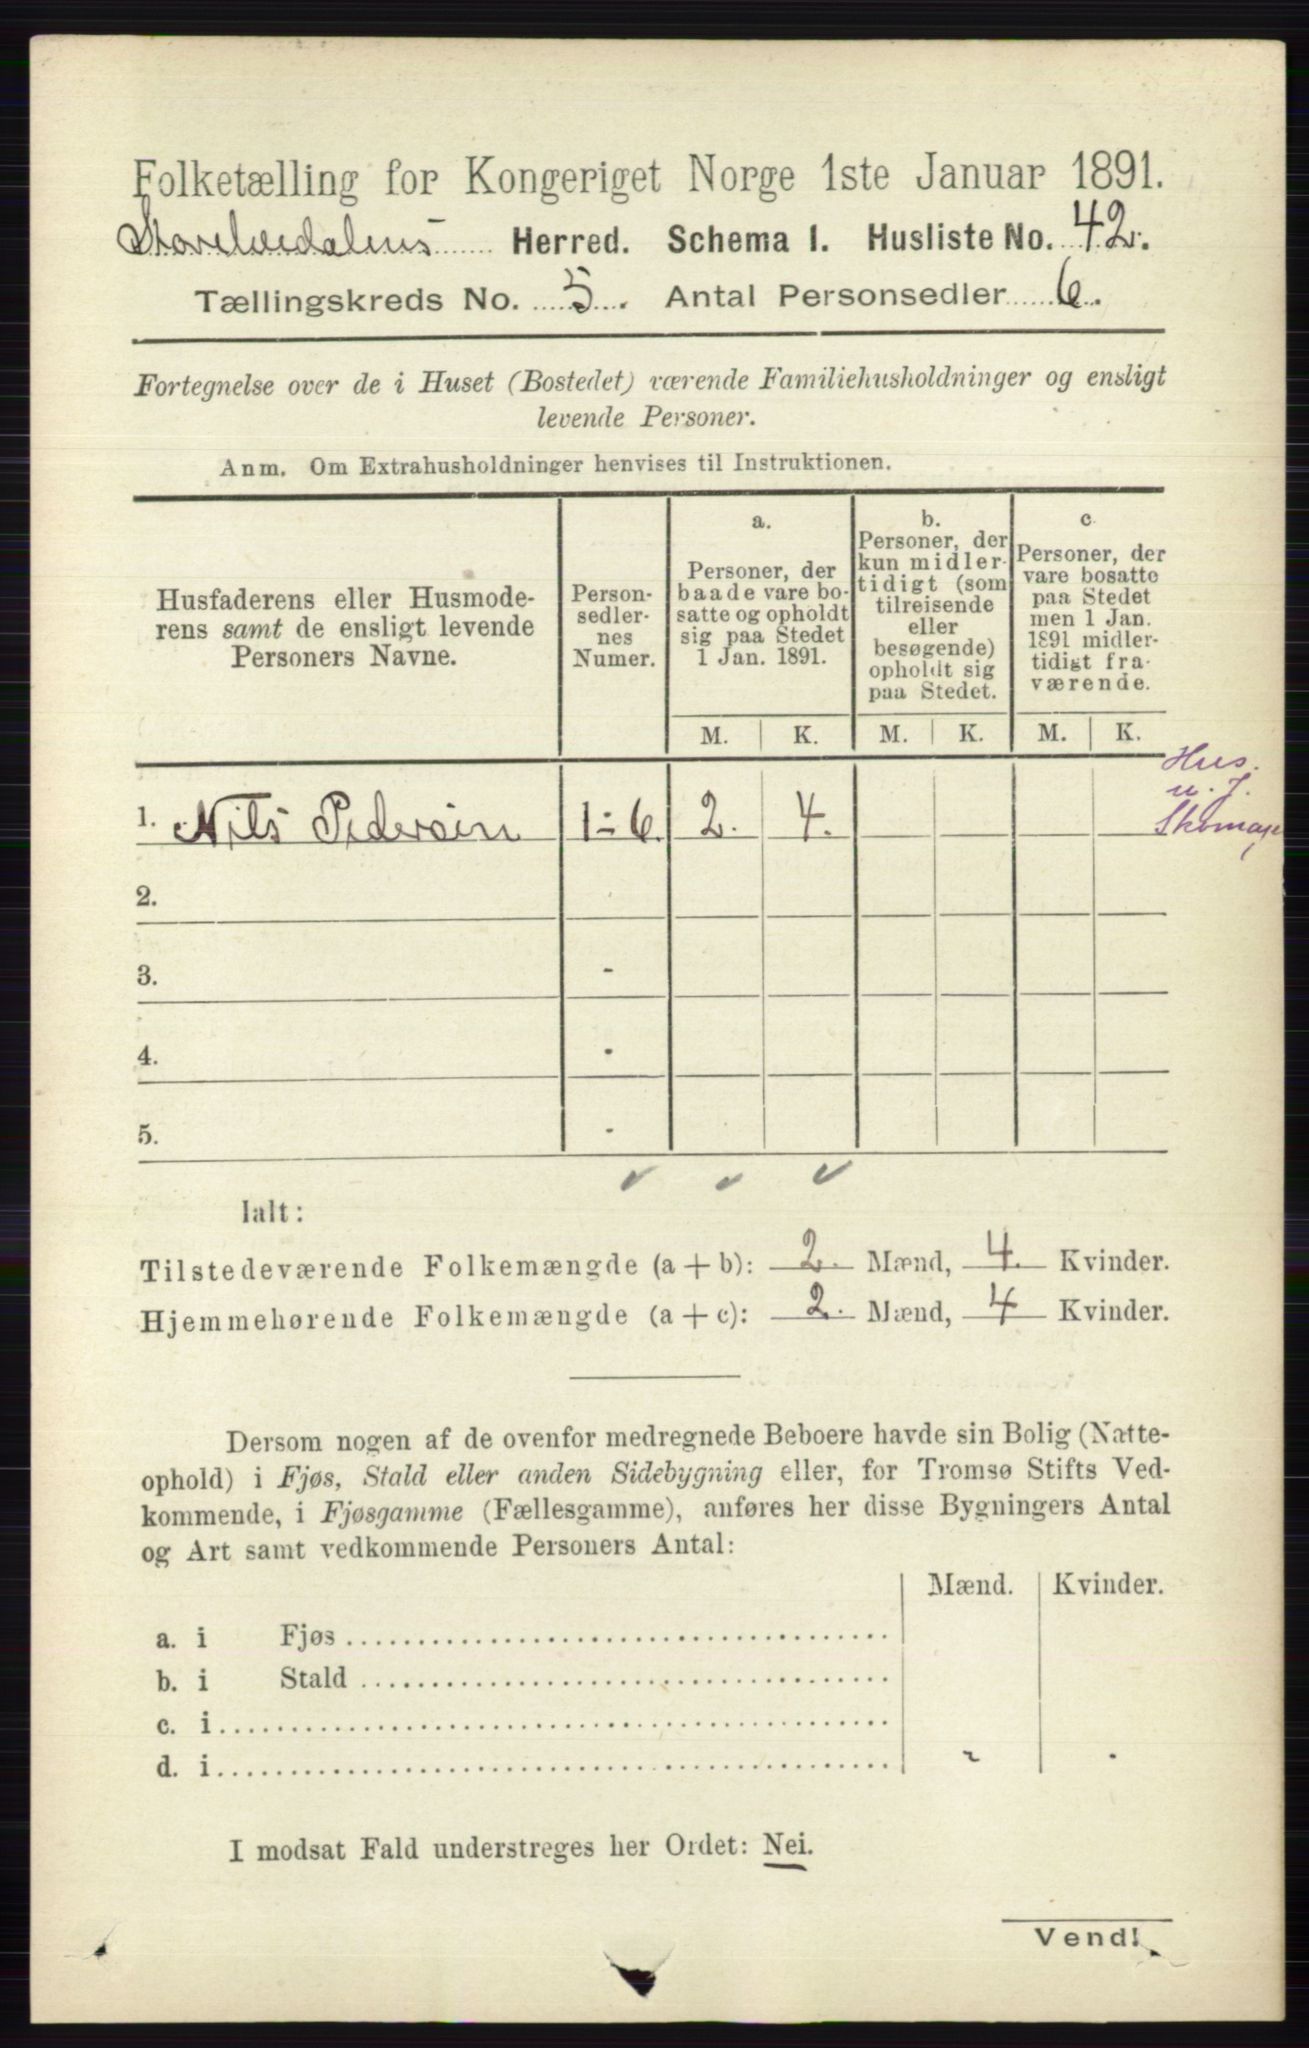 Folketælling for Kongeriget Norge 1ste Januar 1891.
Storelvedalens Herred. Schema 1. Husliste No. 42.
Tællingskreds No. 5. Antal Personsedler 6.
Fortegnelse over de i Huset (Bostedet) værende Familiehusholdninger og ensligt
levende Personer.
Anm. Om Extrahusholdninger henvises til Instruktionen.
Husfaderens eller Husmode-
rens samt de ensligt levende
Personers Navne.
Person-
sedler-
nes
Numer.
a.
Personer, der
baade vare bo-
satte og opholdt
sig paa Stedet
1 Jan. 1891.
b.
Personer, der
kun midler-
tidigt (som
tilreisende
eller
besøgende)
opholdt sig
paa Stedet.
c.
Personer, der
vare bosatte
paa Stedet
men 1 Jan.
1891 midler-
tidigt fra-
værende.
M. K. M. K. M. K.
1. Nils Pedersen 1-6. 2. 4.
Hus.
u. J.
Skomag
2.
3. -
4. -
5. -
Ialt:
Tilstedeværende Folkemængde (a + b): 2. Mænd, 4. Kvinder.
Hjemmehørende Folkemængde (a + c): 2. Mænd, 4 Kvinder.
Dersom nogen af de ovenfor medregnede Beboere havde sin Bolig (Natte-
ophold) i Fjøs, Stald eller anden Sidebygning eller, for Tromsø Stifts Ved-
kommende, i Fjøsgamme (Fællesgamme), anføres her disse Bygningers Antal
og Art samt vedkommende Personers Antal:
Mænd. Kvinder.
a. i Fjøs
b. i Stald
c. i
d. i
I modsat Fald understreges her Ordet: Nei.
Vend!